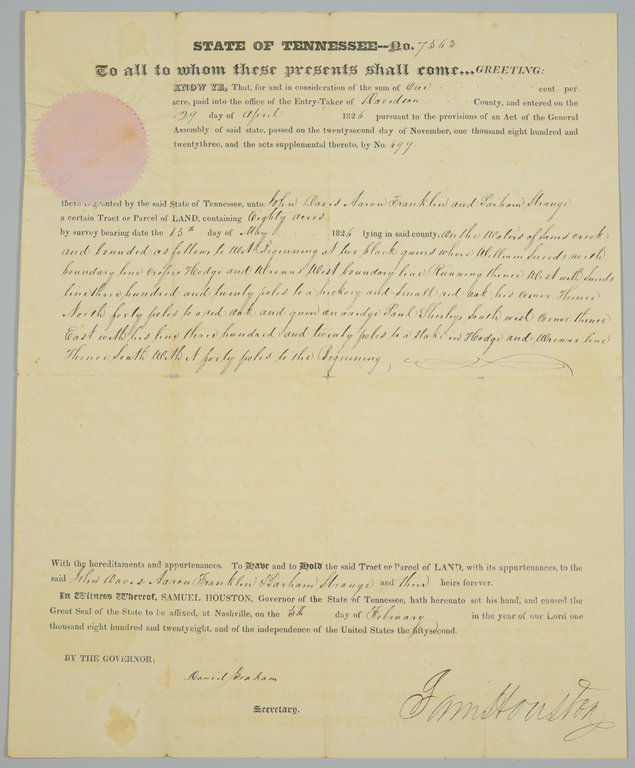 STATE OF TENNESSEE--No. 7563
To all to whom these presents shall come...GREETING:
KNOW YE, That, for and in consideration of the sum of One cent per
acre, paid into the office of the Entry-Taker of Davidson County, and entered on the
29 day of April 1826 pursuant to the provisions of an Act of the General
Assembly of said state, passed on the twentysecond day of November, one thousand eight hundred and
twentythree, and the acts supplemental thereto, by No. 499
there is granted by the said State of Tennessee, unto John Davis Aaron Franklin and Parham Strange
a certain Tract or Parcel of LAND, containing Eighty acres
by survey bearing date the 15th day of May 1826 lying in said county, on the Waters of Jones creek
and bounded as follows to Wit Beginning at two black gums where William Sneeds north
boundary line crosses Hodge and Wrenns West boundary line Running thence West with Sneeds
line three hundred and twenty poles to a hickory and small red oak his corner Thence
North forty poles to a red oak and gum on a ridge Paul Shirleys South west Corner thence
East with his line three hundred and twenty poles to a stake in Hodge and Wrenns line
Thence South With it forty poles to the Beginning
With the hereditaments and appurtenances. To Have and to Hold the said Tract or Parcel of LAND, with its appurtenances, to the
said John Davis Aaron Franklin & Parham Strange and their heirs forever.
In Witness Whereof, SAMUEL HOUSTON, Governor of the State of Tennessee, hath hereunto set his hand, and caused the
Great Seal of the State to be affixed, at Nashville, on the 5th day of February in the year of our Lord one
thousand eight hundred and twentyeight, and of the independence of the United States the fiftysecond.
BY THE GOVERNOR;
Daniel Graham
Secretary.
Sam Houston